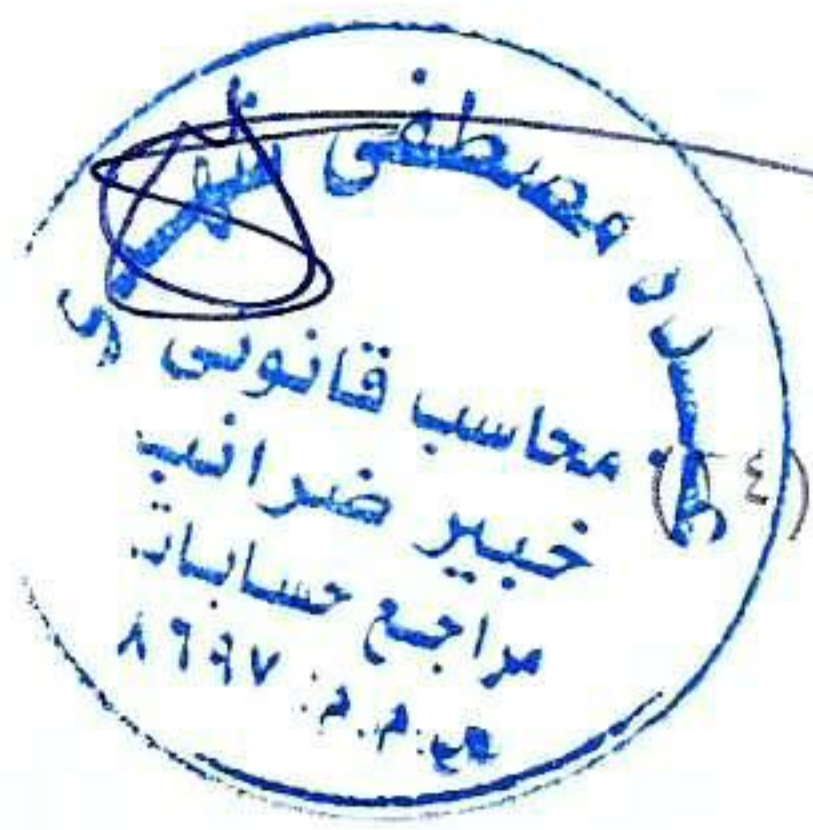 مصطفى
محاسب قانونى
خبير ضرائب
مراجع حسابات
٨٦٩٧
(٤)